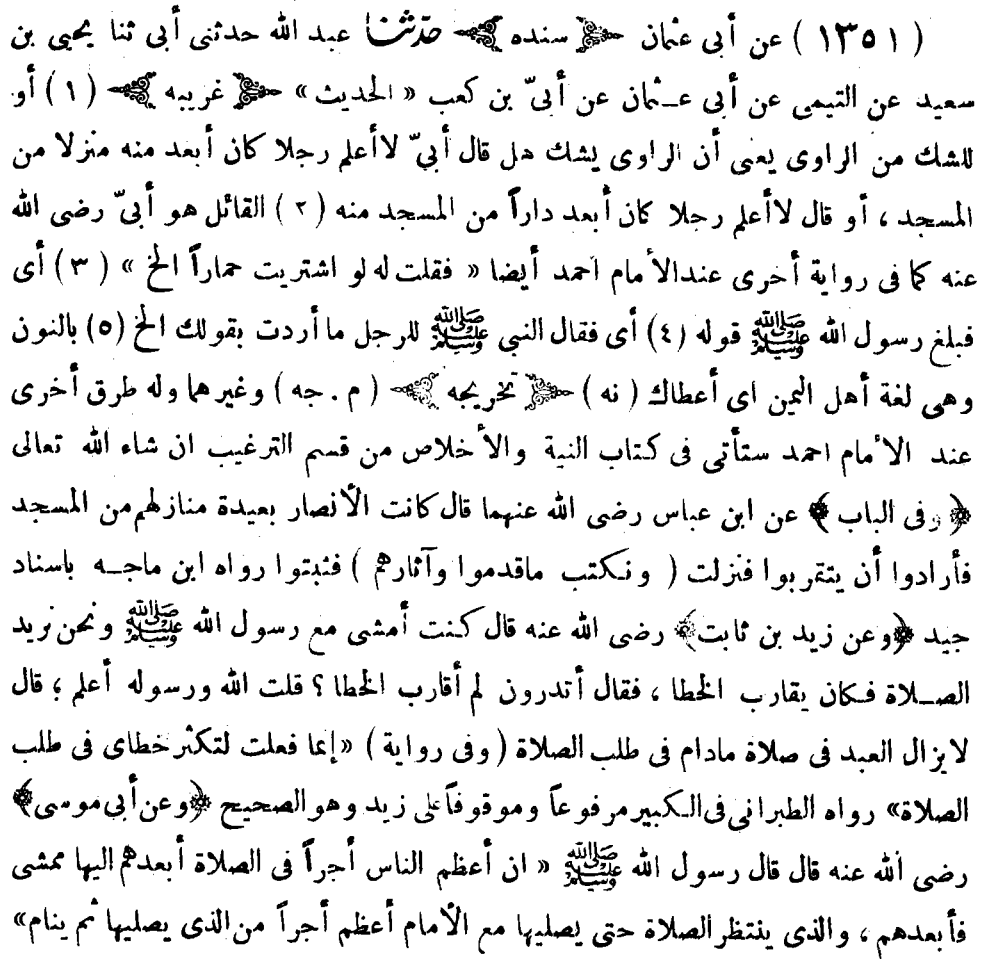 ( ١٣٥١ ) عن أبى عثمان ﴿ سنده ﴾ حدّثنا عبد الله حدثنى أبى ثنا يحيى بن
سعيد عن التيمى عن أبى عـثمان عن أبىّ بن كعب « الحديث » ﴿ غريبه ﴾ ( ١ ) أو
للشك من الراوى يعنى أن الراوى يشك هل قال أبىّ لاأعلم رجلا كان أبعد منه منزلا من
المسجد ، أو قال لاأعلم رجلا كان أبعد داراً من المسجد منه ( ٢ ) القائل هو أبىّ رضى الله
عنه كما فى رواية أخرى عندالأمام احمد أيضا « فقلت له لو اشتريت حماراً الخ » ( ٣ ) أى
فبلغ رسول الله ﷺ قوله (٤) أى فقال النبى ﷺ للرجل ما أردت بقولك الخ (٥) بالنون
وهى لغة أهل اليمن اى أعطاك ( نه ) ﴿ تخريجه ﴾ ( م . جه ) وغيرهما وله طرق أخرى
عند الأمام احمد ستأتى فى كتاب النية والأخلاص من قسم الترغيب ان شاء الله تعالى
﴿ وفى الباب ﴾ عن ابن عباس رضى الله عنهما قال كانت الأنصار بعيدة منازلهم من المسجد
فأرادوا أن يتقربوا فنزلت ( ونكتب ماقدموا وآثارهم ) فثبتوا رواه ابن ماجـه باسناد
جيد ﴿وعن زيد بن ثابت﴾ رضى الله عنه قال كنت أمشى مع رسول الله ﷺ ونحن نريد
الصـلاة فـكان يقارب الخطا ، فقال أتدرون لم أقارب الخطا ؟ قلت الله ورسوله أعلم ؛ قال
لايزال العبد فى صلاة مادام فى طلب الصلاة ( وفى رواية ) «إنما فعلت لتكثر خطاى فى طلب
الصلاة» رواه الطبرانى فى الـكبير مرفوعاً وموقوفاً على زيد وهو الصحيح ﴿وعن أبى موسى﴾
رضى الله عنه قال قال رسول الله ﷺ « ان أعظم الناس أجراً فى الصلاة أبعدهم اليها ممشى
فأبعدهم ، والذى ينتظر الصلاة حتى يصليها مع الأمام أعظم أجراً من الذى يصليها ثم ينام»